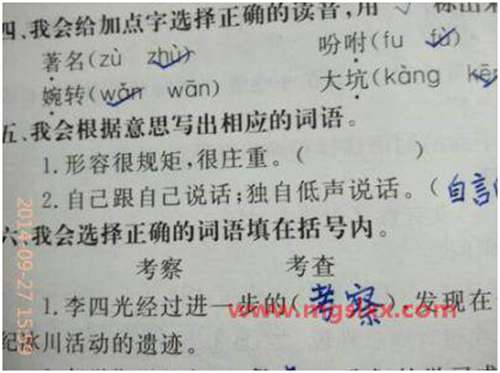 四、我会给加点字选择正确的读音,用
著名(zù zhù) 吩咐(fu fù)
婉转(wǎn wān) 大坑(kàng kēn
五、我会根据意思写出相应的词语。
1.形容很规矩,很庄重。( )
2.自己跟自己说话;独自低声说话。(自言
六、我会选择正确的词语填在括号内。
考察 考查
1.李四光经过进一步的(考察),发现在
纪冰川活动的遗迹。
www.mgsxx.com
2014-09-27 15:59